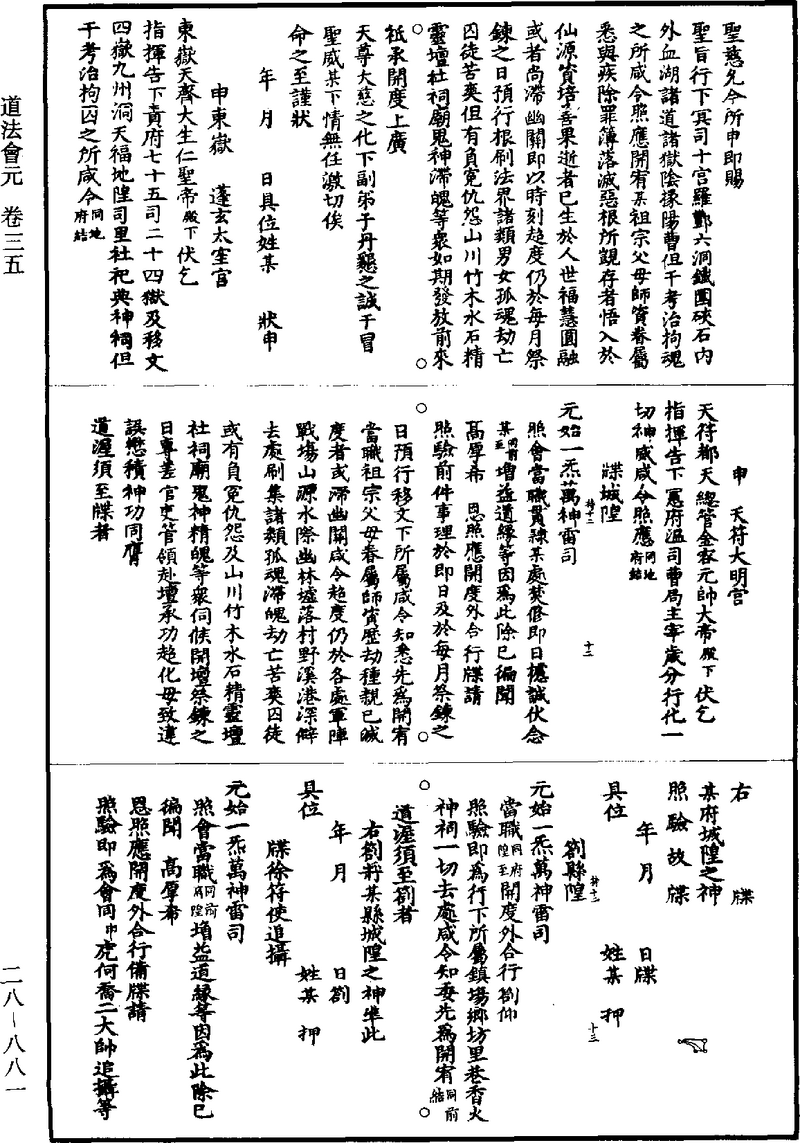 聖慈允令所申即賜
聖旨行下冥司十宮羅酆六洞鐵圍硤石內
外血湖諸道諸獄陰掾陽曹但干考治拘魂
之所咸令照應開宥某祖宗父母師資眷屬
悉與蠲除罪簿落滅惡根所覬存者悟入於
仙源資培善果逝者已生於人世福慧圓融
或者尚滯幽關即以時刻超度仍於每月祭
鍊之日預行根刷法界諸類男女孤魂劫亡
囚徒苦爽但有負冤仇怨山川竹木水石精
靈壇社祠廟鬼神滯魄等衆如期發放前來
祇承開度上廣
天尊大慈之化下副弟子丹懇之誠干冒
聖威某下情無任激切俟
命之至謹狀
年 月 日具位姓某 狀申
申東嶽 蓬玄太空宮
東嶽天齊大生仁聖帝殿下伏乞
指揮告下賁府七十五司二十四獄及移文
四嶽九州洞天福地隍司里社祀典神祠但
干考治拘囚之所咸令同地府結
申 天符大明宮
天符都天總管金容元帥大帝殿下伏乞
指揮告下冤府溫司曹局主宰歲分行化一
切神威咸令照應同地府結
牒城隍
元始一炁萬神雷司
照會當職貫隸某處焚修即日攄誠伏念
某同前至增益道緣等因爲此除已徧聞
高厚希 恩照應開度外合行牒請
照驗前件事理於即日及於每月祭鍊之
日預行移文下所屬咸令知悉先爲開宥
當職祖宗父母眷屬師資歷劫種親已滅
度者或滯幽關咸令超度仍於各處軍陣
戰塲山源水際幽林墟落村野溪港深僻
去處刷集諸類孤魂滯魄劫亡苦爽囚徒
或有負冤仇怨及山川竹木水石精靈壇
社祠廟鬼神精魄等衆伺候開壇祭鍊之
日專差官吏管領赴壇承功超化毋致違
誤懋積神功同膺
道渥須至牒者
右 牒
某府城隍之神
照驗故牒
年 月 日牒
具位 姓某 押
劄縣隍
元始一炁萬神雷司
當職同府隍至開度外合行劄仰
照驗即爲行下所屬鎮場鄉坊里巷香火
神祠一切去處咸令知委先爲開宥同前結
道渥須至劄者
右劄將某縣城隍之神準此
年 月 日劄
具位 姓某 押
牒徐符使追攝
元始一炁萬神雷司
照會當職同前府隍增益道緣等因爲此除已
徧聞 高厚希
恩照應開度外合行備牒請
照驗即爲會同申虎何喬二大帥追攝等
道法會元 卷三五
二八－八八一